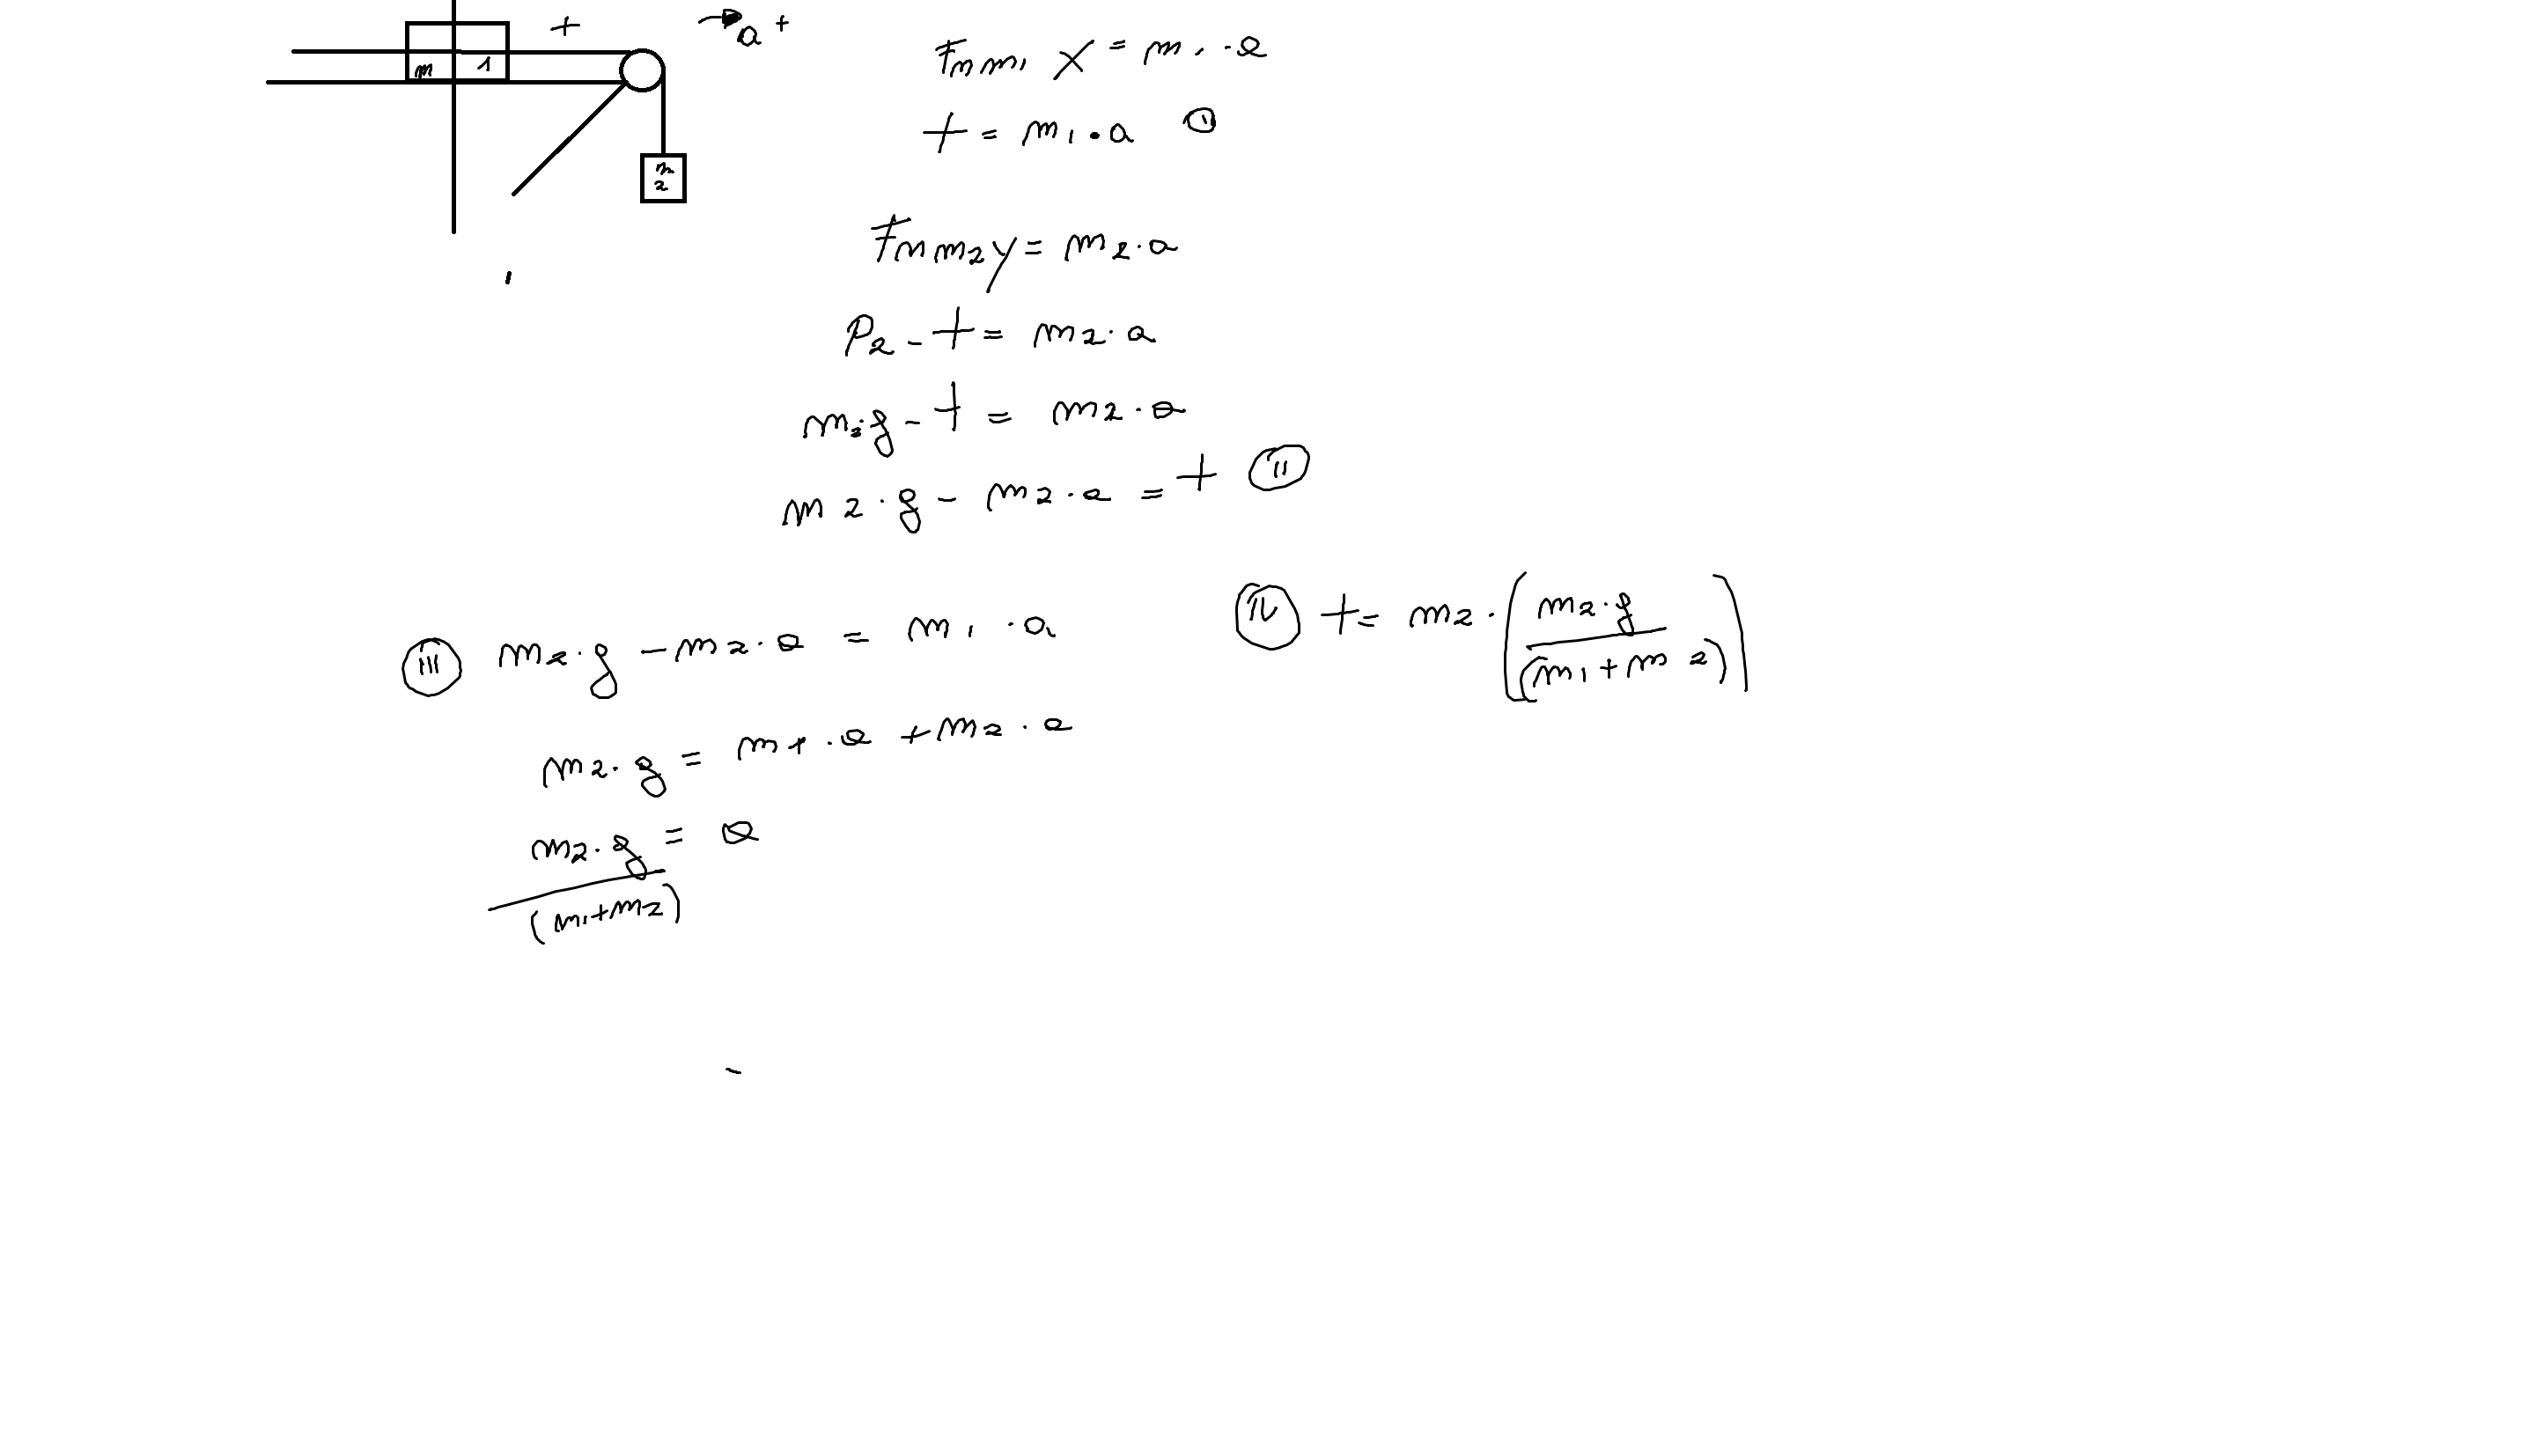 + a +
m 1
m
2
Fn m1 x = m1 · a
t = m1 · a I
Fn m2 y = m2 · a
P2 - t = m2 · a
m2·g - t = m2 · a
m2 · g - m2 · a = t II
III m2 · g - m2 · a = m1 · a
m2 · g = m1 · a + m2 · a
m2 · g = a
(m1+m2)
IV t = m2 · ( m2 · g
(m1 + m2) )